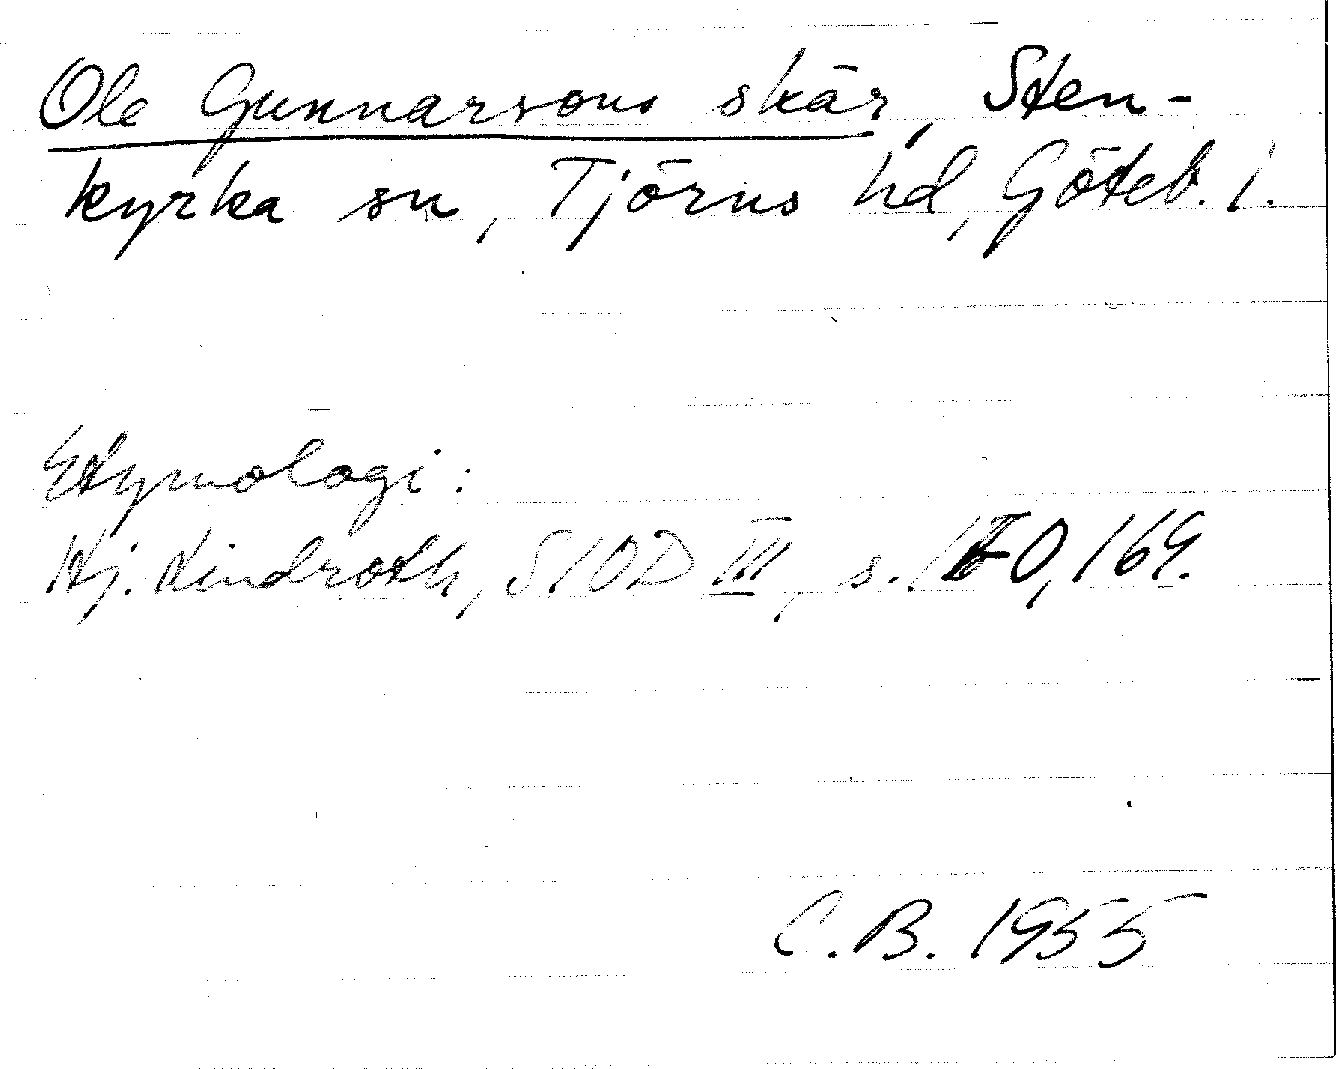 Ole Gunnarsons skär, Sten-
kyrka sn, Tjörns hd, Göteb. l.
Etymologi:
Hj. Lindroth, SIOD III, s. 164.
C.B. 1955